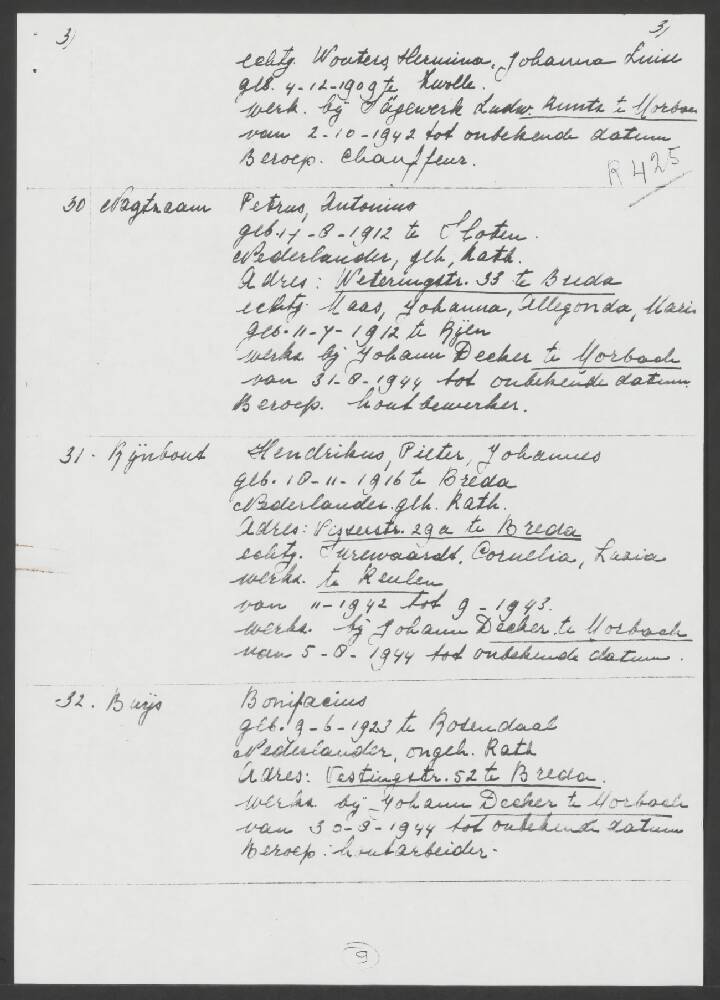 3) 3)
echtg. Wouters, Hermina, Johanna Luise
geb. 4-12-1909 te Zwolle.
werk. bij Sägewerk Ludw. Kuntz te Morbach
van 2-10-1942 tot onbekende datum
Beroep. Chauffeur.
R 425
30 Nagtzaam Petrus, Antonius
geb. 17-8-1912 te Sloten.
Nederlander, geh, Kath.
Adres: Weteringstr. 33 te Breda
echtg. Maas, Johanna, Allegonda, Maria
geb. 11-7-1912 te Rijen
werkz bij Johann Decker te Morbach
van 31-8-1944 tot onbekende datum.
Beroep. houtbewerker.
31. Rijnbout Hendrikus, Pieter, Johannes
geb. 18-11-1916 te Breda
Nederlander. geh. Kath.
Adres: Visserstr. 29a te Breda
echtg. Cornelia, Luzia
werkz. te Keulen
van 11-1942 tot 9-1943.
werkz. bij Johann Decker te Morbach
van 5-8-1944 tot onbekende datum.
32. Buijs Bonifacius
geb. 9-6-1923 te Rosendaal
Nederlander, ongeh. Kath
Adres: Vestingstr. 52 te Breda.
werkz. bij Johann Decker te Morbach
van 30-8-1944 tot onbekende datum
Beroep: houtarbeider.
9